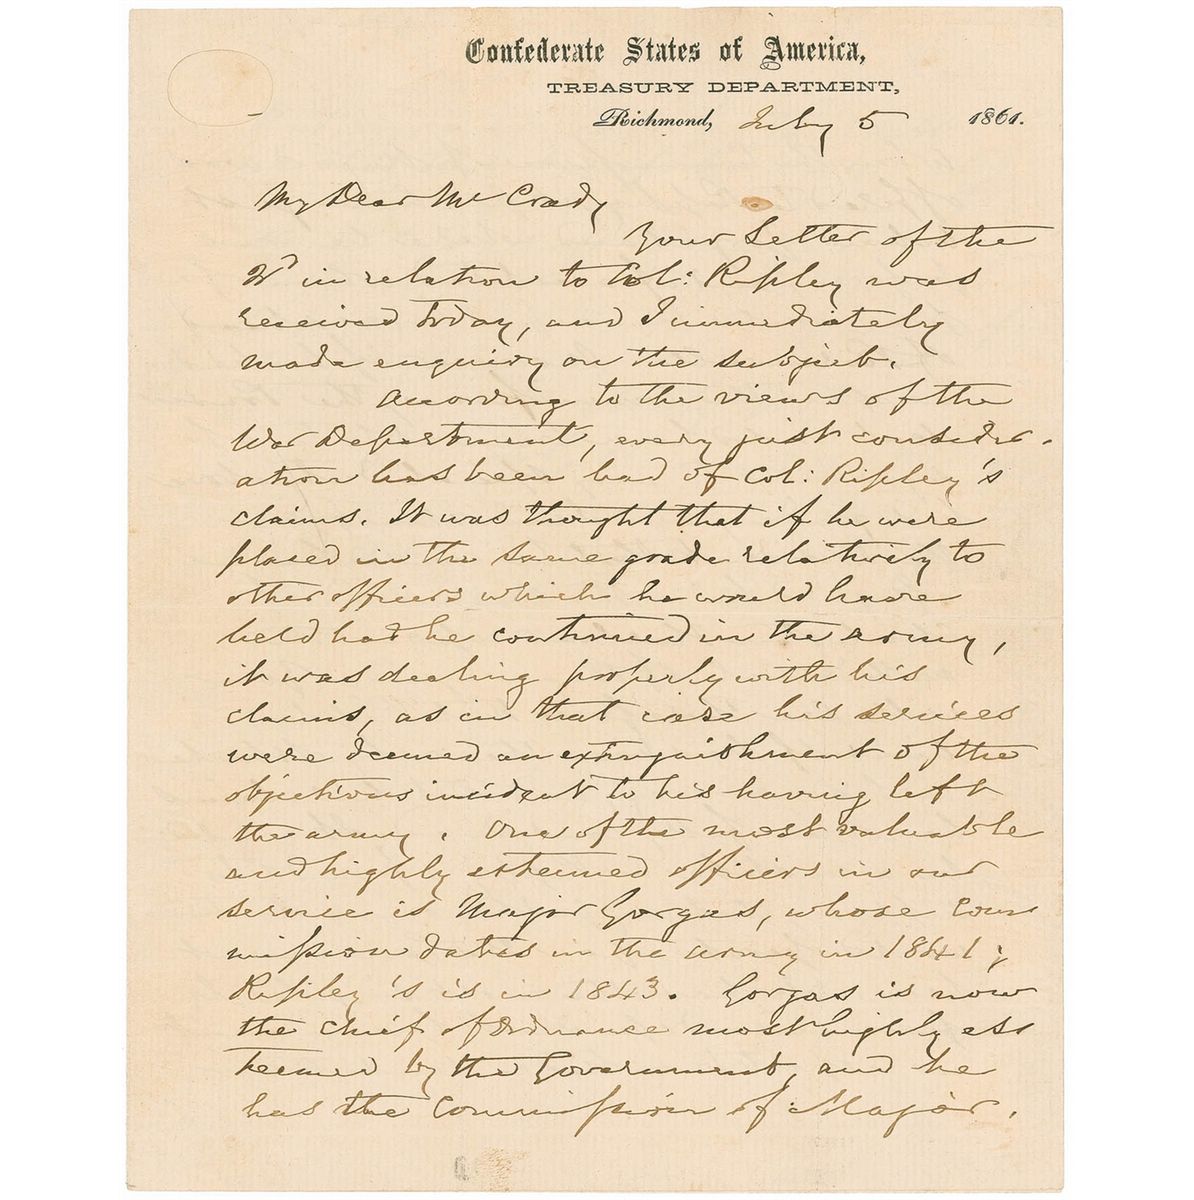 Confederate States of America,
TREASURY DEPARTMENT,
Richmond, July 5 1861.
My Dear Mc Crady
Your Letter of the
2d in relation to Col: Ripley was
received today, and I immediately
made enquiry on the subject.
According to the views of the
War Department, every just consider-
ation has been had of Col: Ripley's
claims. It was thought that if he were
placed in the same grade relatively to
other officers which he would have
held had he continued in the army,
it was dealing properly with his
claims, as in that case his services
were deemed an extinguishment of the
objections incident to his having left
the army. One of the most valuable
and highly esteemed officers in our
service is Major Gorgas, whose Com
mission dates in the army in 1841;
Ripley's is in 1843. Gorgas is now
the chief of Ordnance most highly es
teemed by the Government, and he
has the Commission of Major.